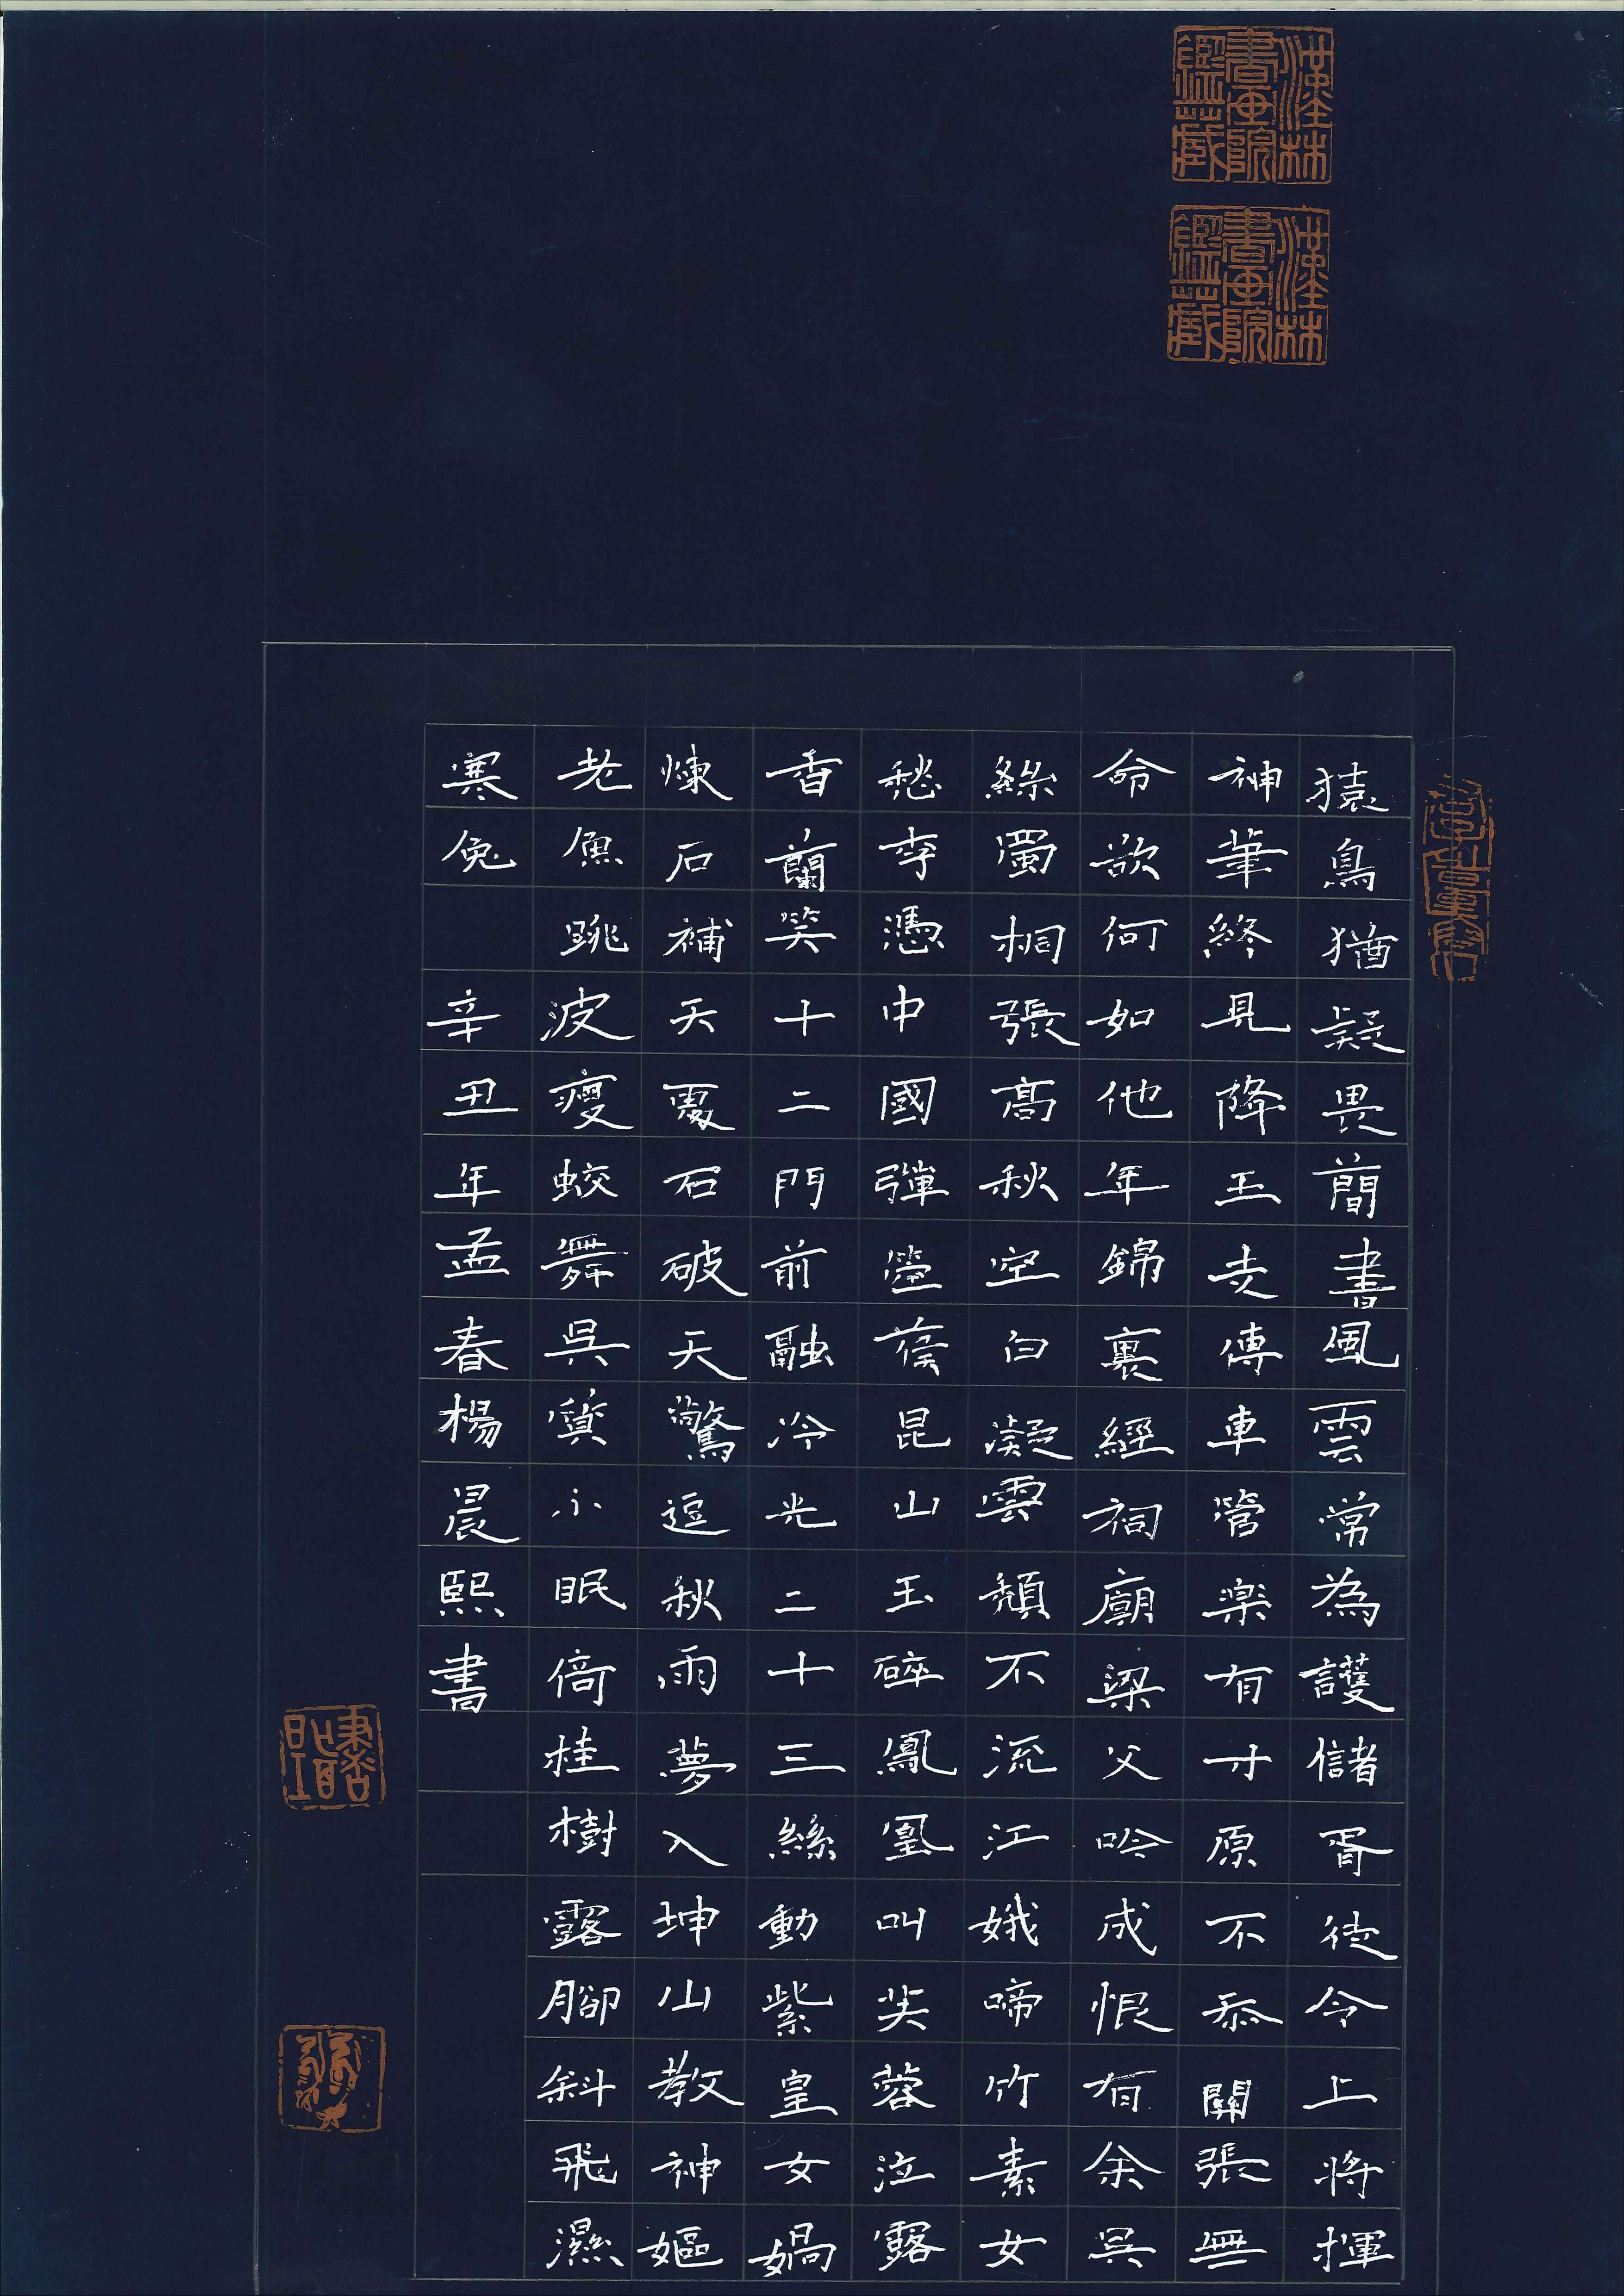 漢林書画院鑑藏
漢林書画院鑑藏
猿鳥猶疑畏簡書風雲常為護儲胥徒令上將揮
神筆終見降王走傳車管樂有才原不忝關張無
命欲何如他年錦裏經祠廟梁父吟成恨有余吳
絲蜀桐張高秋空白凝雲頹不流江娥啼竹素女
愁李憑中國彈箜篌昆山玉碎鳳凰叫芙蓉泣露
香蘭笑十二門前融冷光二十三絲動紫皇女媧
煉石補天處石破天驚逗秋雨夢入坤山教神嫗
老魚跳波瘦蛟舞吳質不眠倚桂樹露腳斜飛濕
寒兔 辛丑年孟春楊晨熙書